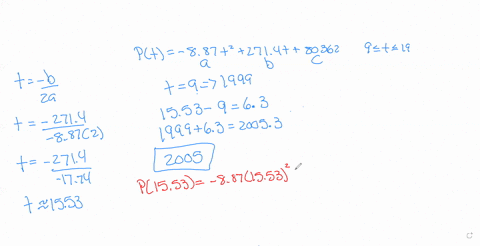 P(t) = -8.87t² + 271.4t + 80362    9 ≤ t ≤ 19
a b c
t = -b/2a
t = -271.4/-8.87(2)
t = -271.4/-17.74
t ≈ 15.53
t = 9 => 1999
15.53 - 9 = 6.3
1999 + 6.3 = 2005.3
2005
P(15.53) = -8.87(15.53)²